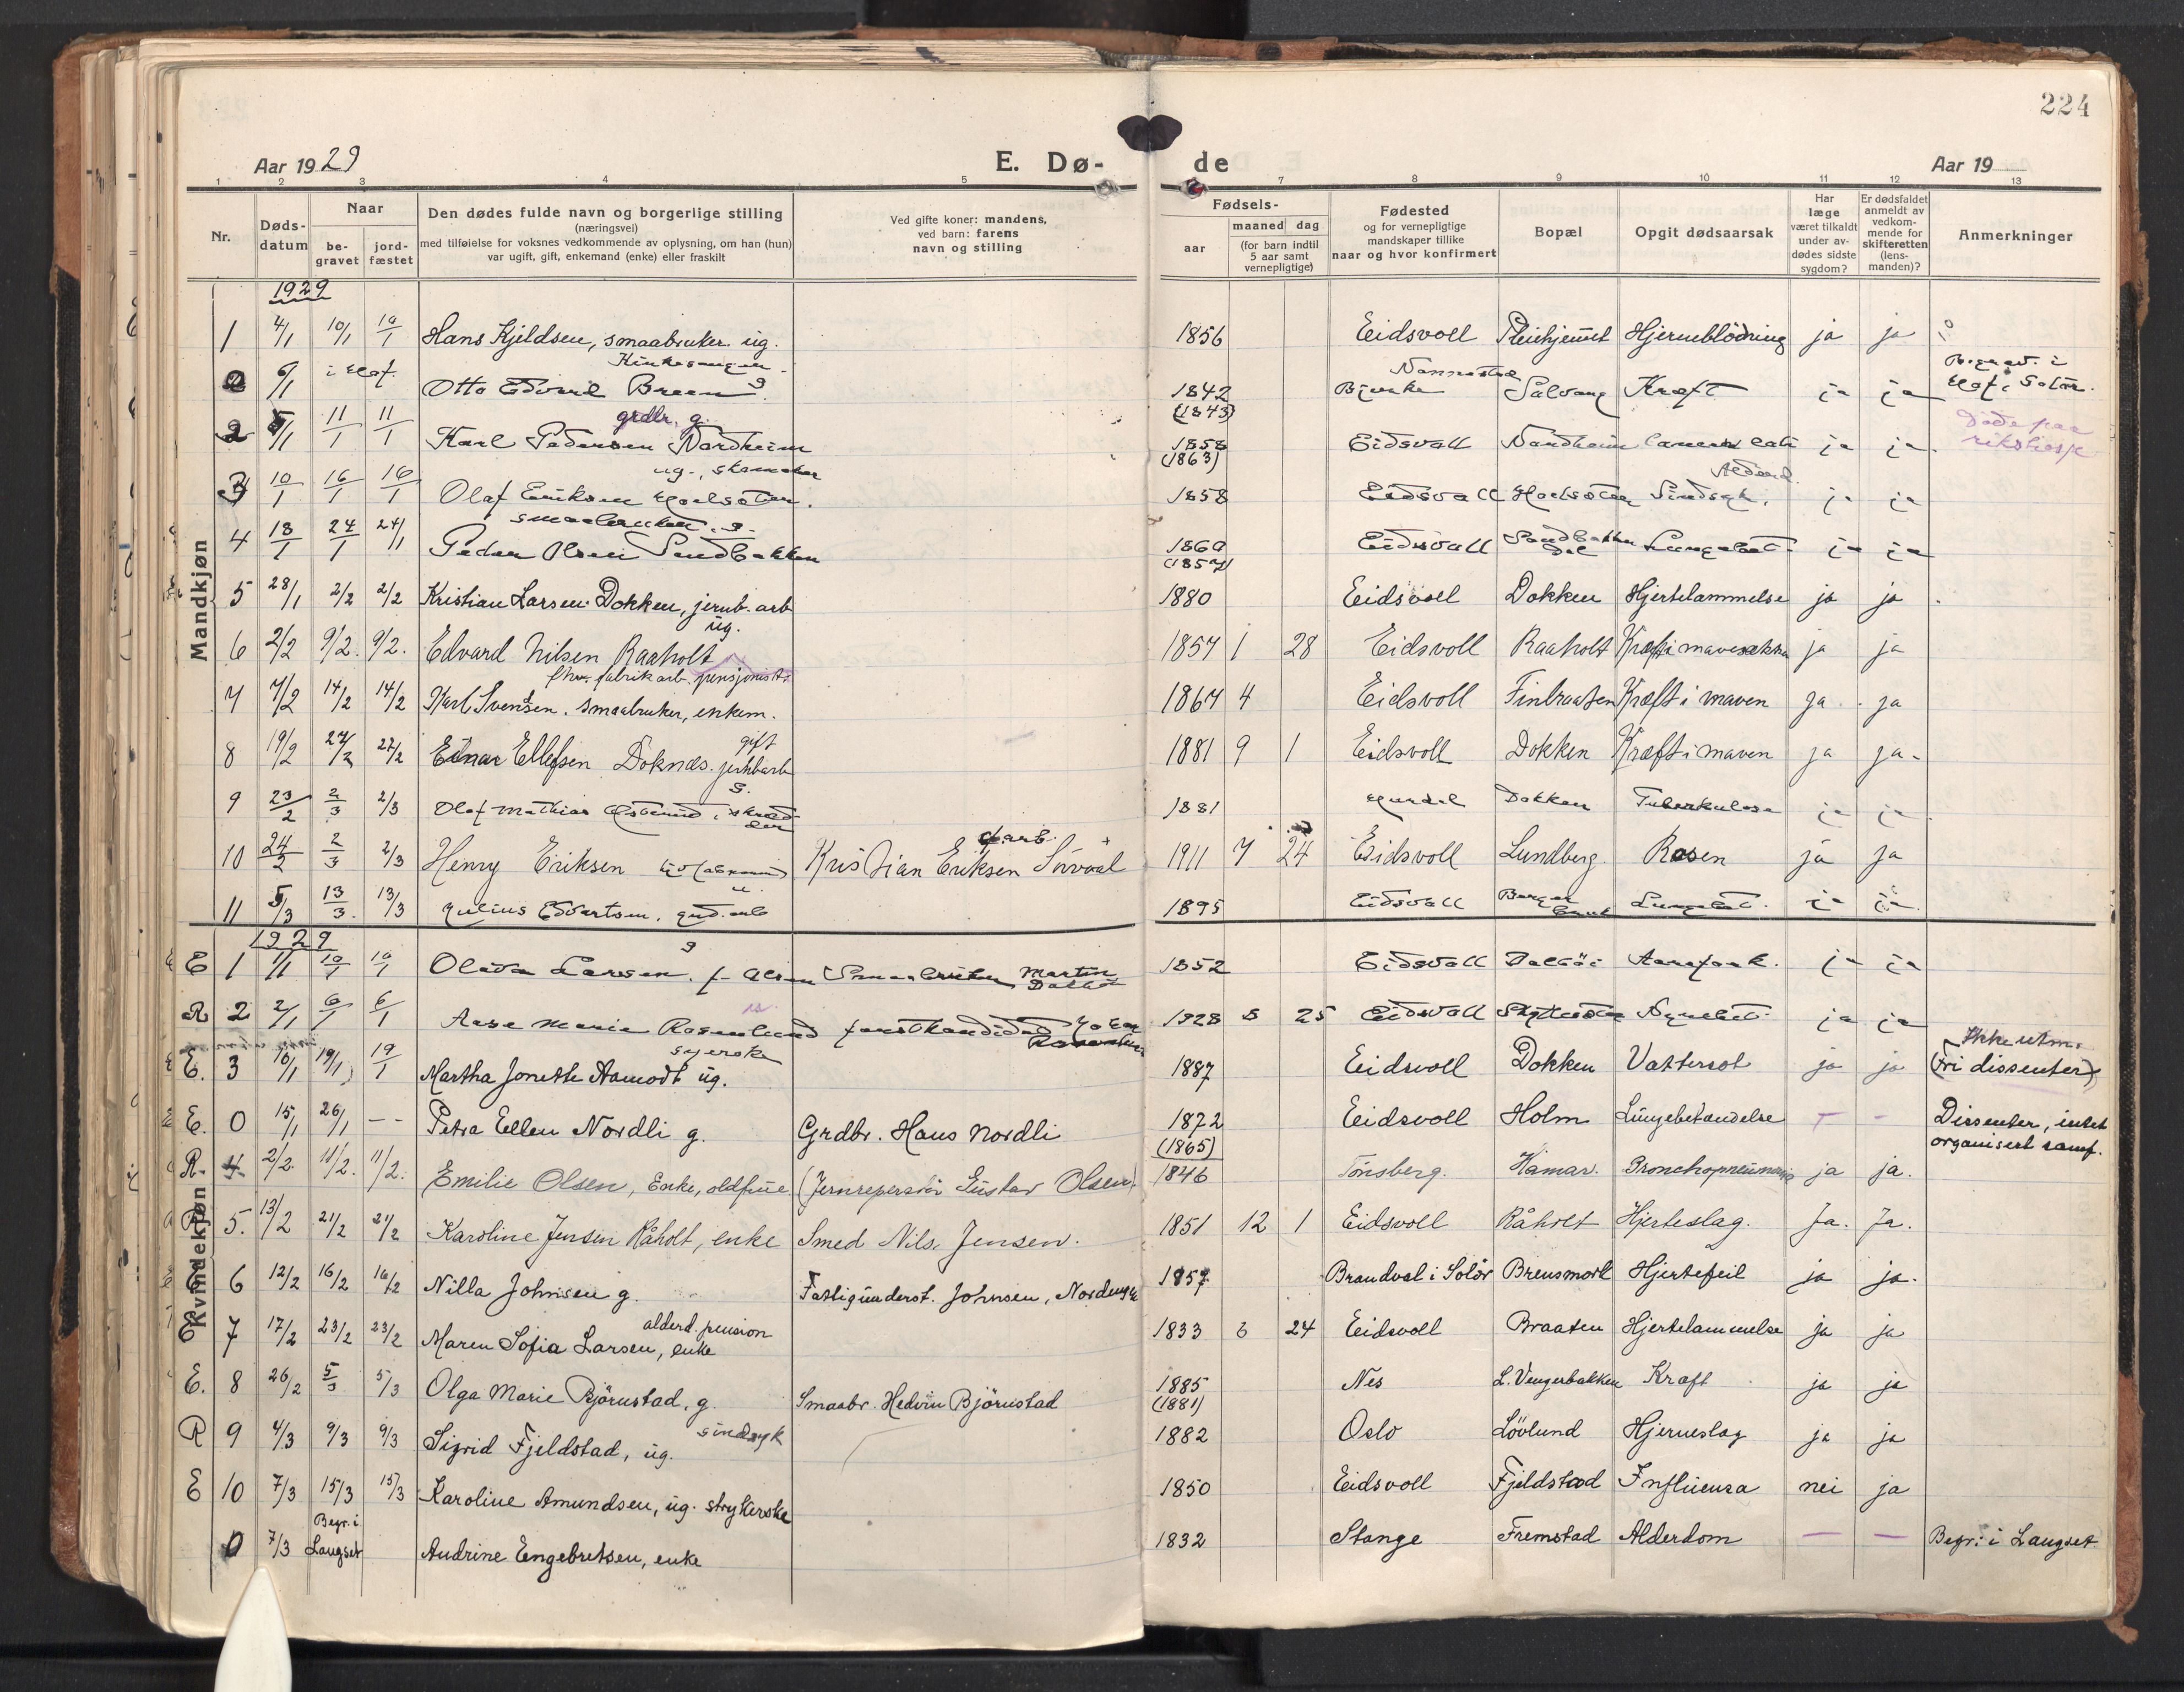 224
Aar 1929 E. Dø- de Aar 19
1 2 3 4 5 7 8 9 10 11 12 13
Nr. Døds-datum Naar begravet jordfæstet Den dødes fulde navn og borgerlige stilling (næringsvei) med tilføielse for voksnes vedkommende av oplysning, om han (hun) var ugift, gift, enkemand (enke) eller fraskilt Ved gifte koner: mandens, ved barn: farens navn og stilling Fødsels- aar maaned dag (for barn indtil 5 aar samt vernepligtige) Fødested og for vernepligtige mandskaper tillike naar og hvor konfirmert Bopæl Opgit dødsaarsak Har læge været tilkaldt under avdødes sidste sygdom? Er dødsfaldet anmeldt av vedkommende for skifteretten (lensmanden)? Anmerkninger
Mandkjøn
1929
1 4/1 10/1 10/1 Hans Kjeldsen, smaabruker. ug. 1856 Eidsvoll Pleiehjemmet Hjerneblödning ja ja
6/1 Otto Edvard Breen 1842 (1843) Nannestad Kræft ja ja Begrav. i
2 5/1 11/1 11/1 Karl Pedersen Nordheim grdbr. g. 1858 (1863) Eidsvoll Nordheim ja ja Döde paa rikshosp.
3 10/1 16/1 16/1 Olaf Eriksen ug., skomaker 1858 Eidsvoll Sindsyk. ja ja
4 18/1 24/1 24/1 Peder Olsen Sandbakken smaabruker. g. 1860 Eidsvoll Sandbakken Dal Lungebet. ja ja
5 28/1 2/2 2/2 Kristian Larsen Dokken, jernb. arb ug. 1880 Eidsvoll Dokken Hjertelammelse ja ja
6 2/2 9/2. 9/2. Edvard Nilsen Raaholt fhv. fabrikarb. pensjonist 1857 1 28 Eidsvoll Raaholt Kræft i mavesækken ja ja
7 7/2 14/2 14/2 Karl Svendsen. smaabruker, enkem. 1867 4 Eidsvoll Finbraaten Kræft i maven ja ja
8 19/2 27/2 27/2 Einar Ellefsen Doknæs. jernbarb gift 1881 9 1 Eidsvoll Dokken Kræft i maven ja ja
9 23/2 2/3 2/3 Olaf Mathias 1881 Dokken Tuberkulose ja ja
10 24/2 2/3 2/3 Henry Eriksen Kristian Eriksen 1911 7 24 Eidsvoll Lundberg Rosen ja ja
11 5/3 13/3. 13/3 Julius Edvartsen. 1895 Eidsvoll Lungebet. ja ja
Kvindekjøn
1929
E 1 1/1 10/1 10/1 Larsen. f. Olsen Smaabruker Martin 1852 Eidsvoll ja ja
R 2 2/1 6/1 6/1 Aase Marie Rosenlund forstkandidat 1928 25 Eidsvoll ja ja
E. 3 10/1 19/1 19/1 Martha Jonette Aamodt ug. syerske 1887 Eidsvoll Dokken Vattersot ja ja Ikke utm. (Fri dissenter)
E. 0 15/1 26/1 -- Petra Ellen Nordli g. Grdbr. Hans Nordli 1872 (1865) Eidsvoll Holm Lungebetændelse - - Dissenter, intet organisert samf.
R. 4 2/2. 11/2. 11/2. Emilie Olsen, Enke, oldfrue (Jernreperatör Gustav Olsen). 1846 Tönsberg. Hamar. Bronchopneumonie ja ja.
R 5. 13/2 21/2 21/2 Karoline Jensen Råholt, enke Smed Nils Jensen. 1851 12 1 Eidsvoll Råholt Hjerteslag. Ja. Ja.
E 6 12/2 16/2 16/2 Nilla Johnsen g. Fattigunderst. Johnsen, 1857 Brandval i Solör Brensmork Hjertefeil ja ja.
E 7 17/2 23/2 23/2 Maren Sofia Larsen, enke alderd. pension 1833 6 24 Eidsvoll Braaten Hjertelammelse ja ja
E. 8 26/2 5/3 5/3 Olga Marie Björnstad, g. Smaabr. Hedvin Björnstad 1885 (1881) Nes L. Vengerbakken Kræft ja ja
R 9 4/3 9/3 9/3 Sigrid Fjeldstad, ug. sindsyk 1882 Oslo Lövlund Hjerneslag ja ja
E 10 7/3 15/3 15/3 Karoline Amundsen, ug. strykerske 1850 Eidsvoll Fjeldstad Influensa nei ja
0 7/3 Begr. i Langset Andrine Engebretsen, enke 1832 Stange Fremstad Alderdom — — Begr. i Langset